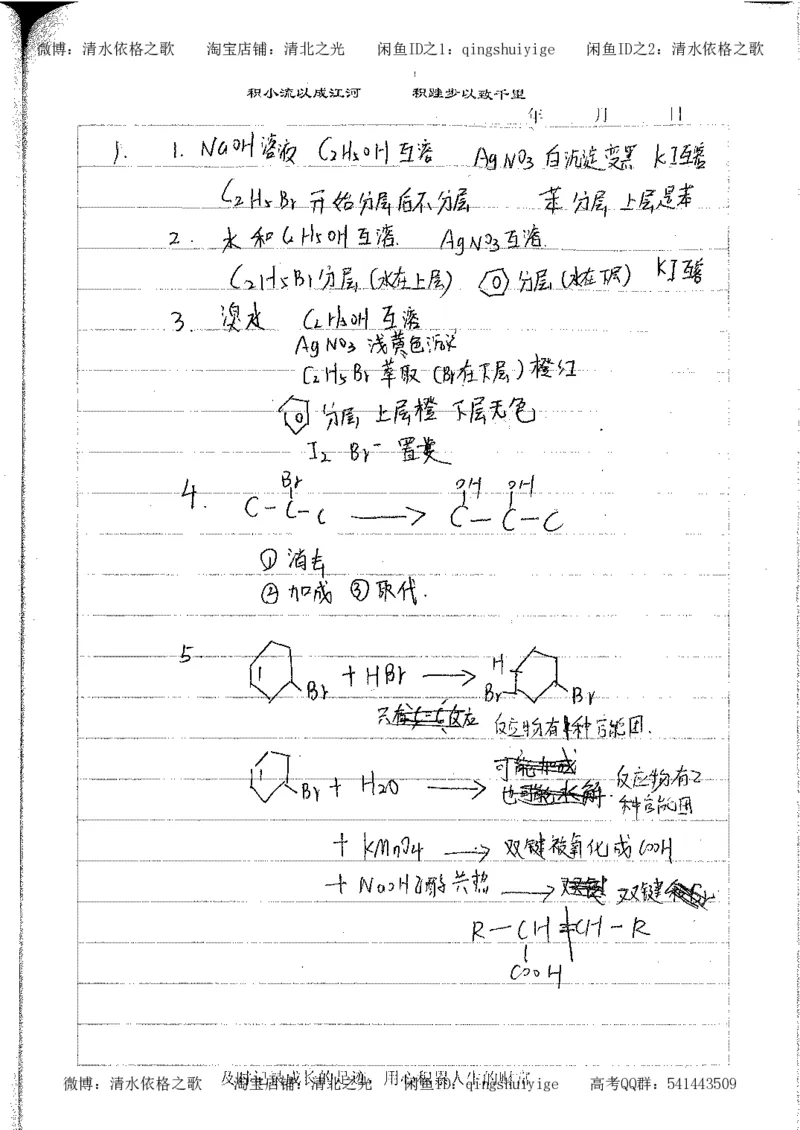 微博：清水依格之歌 淘宝店铺：清北之光 闲鱼ID之1：qingshuiyige 闲鱼ID之2：清水依格之歌
积小流以成江河 积跬步以致千里
年 月 日
1. 1. NaOH溶液 C2H5OH互溶 AgNO3 白沉淀变黑 KI互溶
C2H5Br 开始分层后不分层 苯 分层 上层是苯
2. 水和C2H5OH互溶. AgNO3互溶.
C2H5Br分层 (水在上层) 分层 (水在下层) KI互溶
3. 溴水 C2H5OH 互溶
AgNO3 浅黄色沉淀
C2H5Br 萃取 (Br在下层) 橙红
分层 上层橙 下层无色
I2 Br- 置换
4. Br OH OH
C-C-C → C-C-C
① 消去
② 加成 ③ 取代.
5. Br + HBr → H Br Br
反应物有1种官能团.
Br + H2O → 反应物有2
种官能团
+ KMnO4 → 双键被氧化成COOH
+ NaOH醇共热 → 双键
R-CH=CH-R
COOH
及时记录成长的足迹，用心积累人生的财富
微博：清水依格之歌 淘宝店铺：清北之光 闲鱼ID：qingshuiyige 高考QQ群：541443509